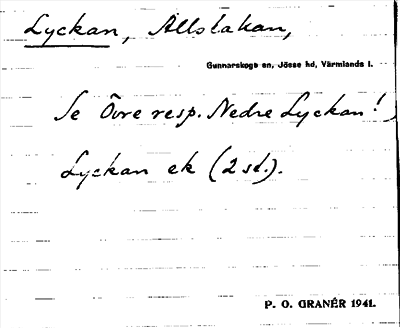 Lyckan, Allstakan,
Gunnarskogs en, Jösse hd, Värmlands l.
Se Övre resp. Nedre Lyckan!
Lyckan ek (2 st.).
P. O. GRANÉR 1941.